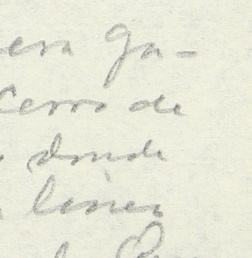 era Ga-
Cerro de
donde
linea